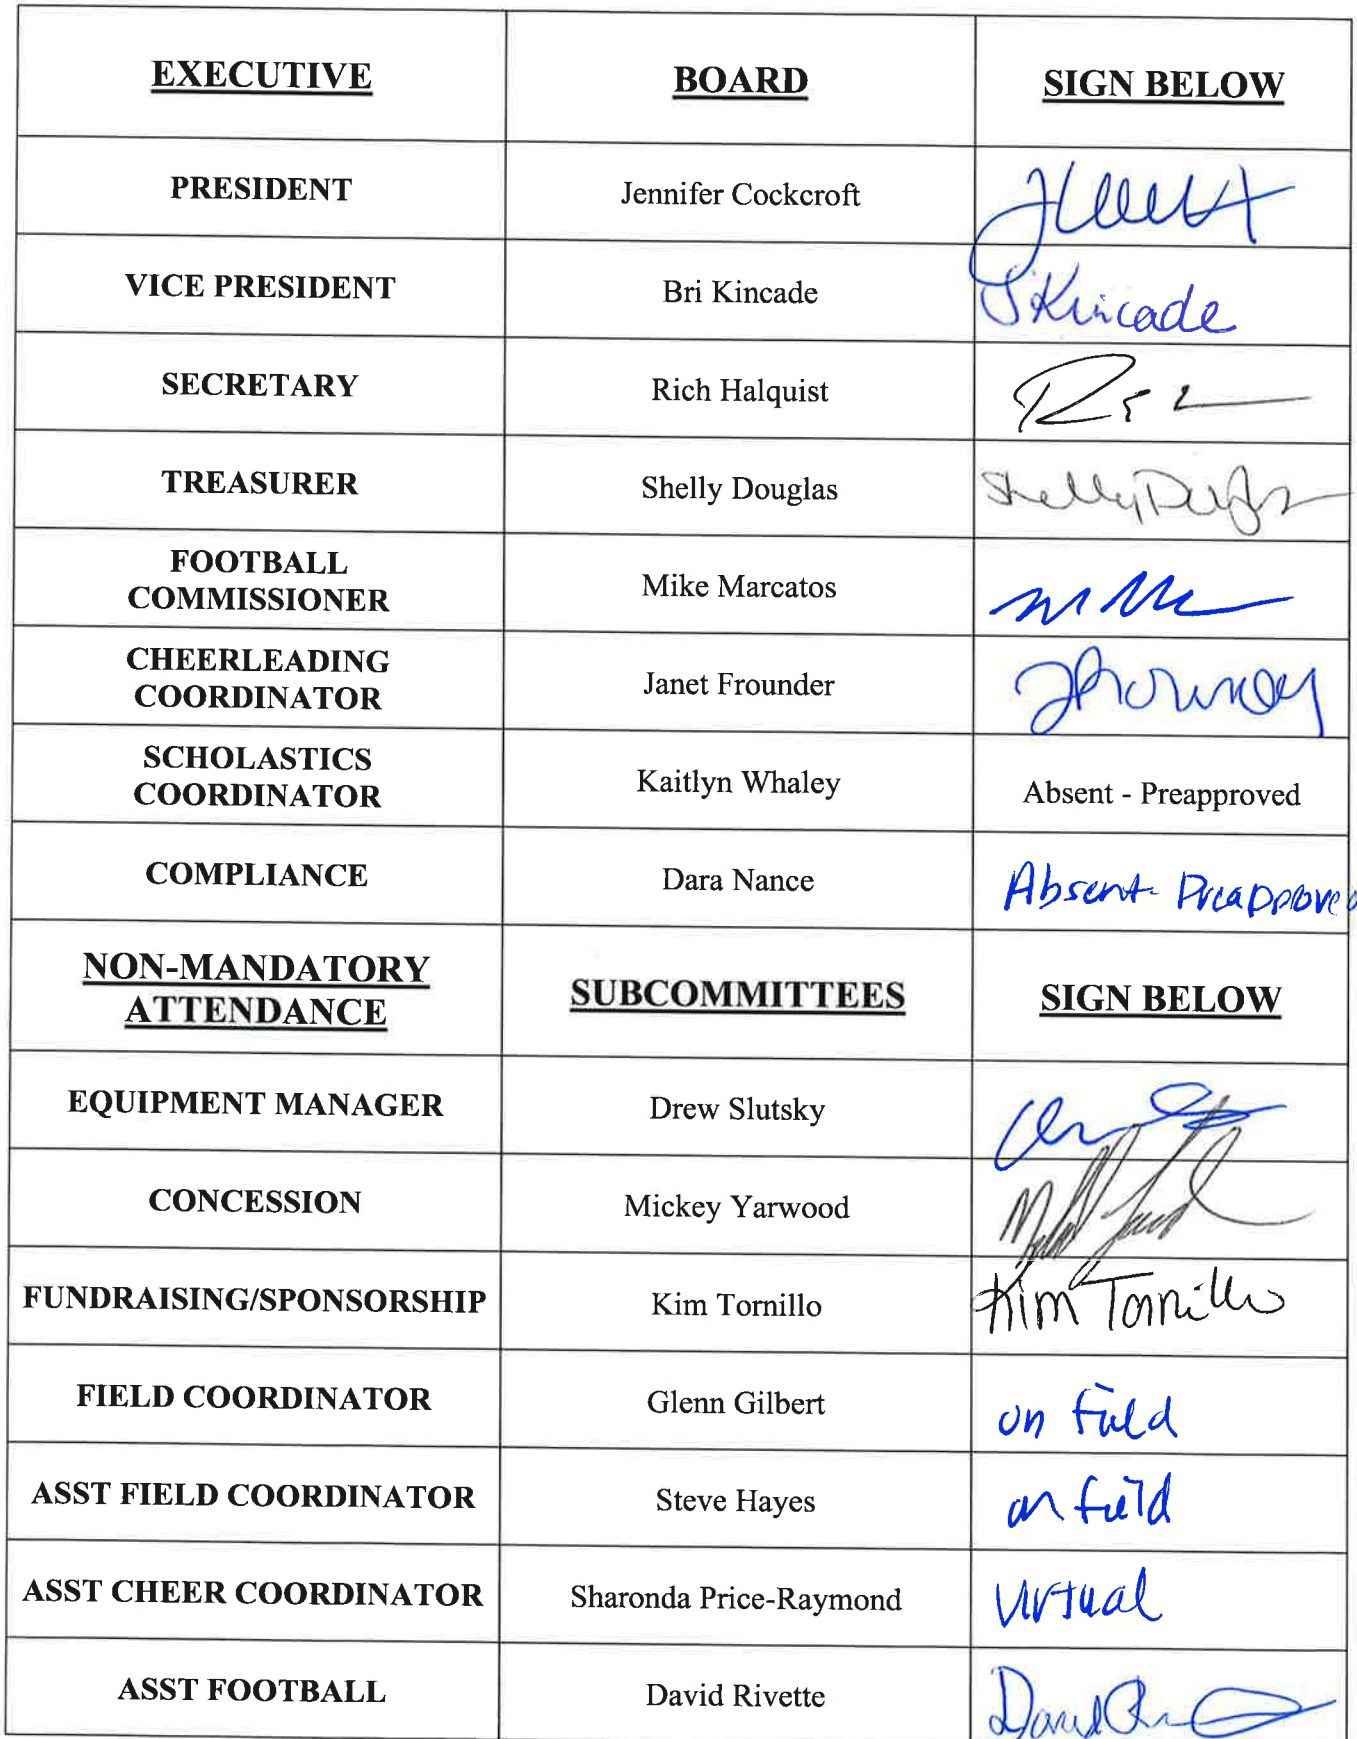 EXECUTIVE BOARD SIGN BELOW
PRESIDENT Jennifer Cockcroft
VICE PRESIDENT Bri Kincade Kincade
SECRETARY Rich Halquist
TREASURER Shelly Douglas Shelly
FOOTBALL
COMMISSIONER Mike Marcatos
CHEERLEADING
COORDINATOR Janet Frounder
SCHOLASTICS
COORDINATOR Kaitlyn Whaley Absent - Preapproved
COMPLIANCE Dara Nance Absent - Preapproved
NON-MANDATORY
ATTENDANCE SUBCOMMITTEES SIGN BELOW
EQUIPMENT MANAGER Drew Slutsky
CONCESSION Mickey Yarwood
FUNDRAISING/SPONSORSHIP Kim Tornillo Kim Tornillo
FIELD COORDINATOR Glenn Gilbert on field
ASST FIELD COORDINATOR Steve Hayes on field
ASST CHEER COORDINATOR Sharonda Price-Raymond Virtual
ASST FOOTBALL David Rivette David